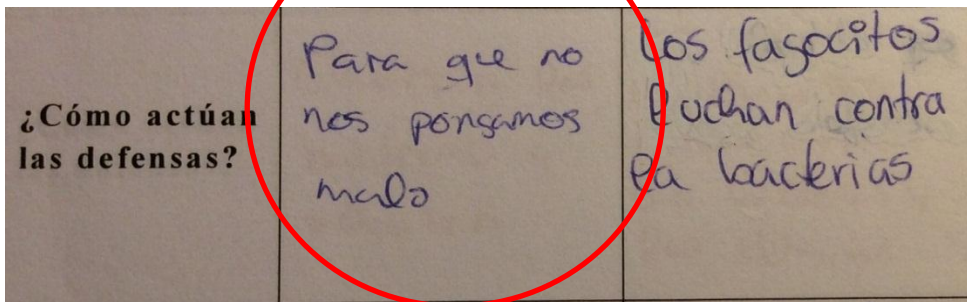 ¿Cómo actúan
las defensas?
Para que no
nos pongamos
malo
Los fagocitos
luchan contra
la bacterias